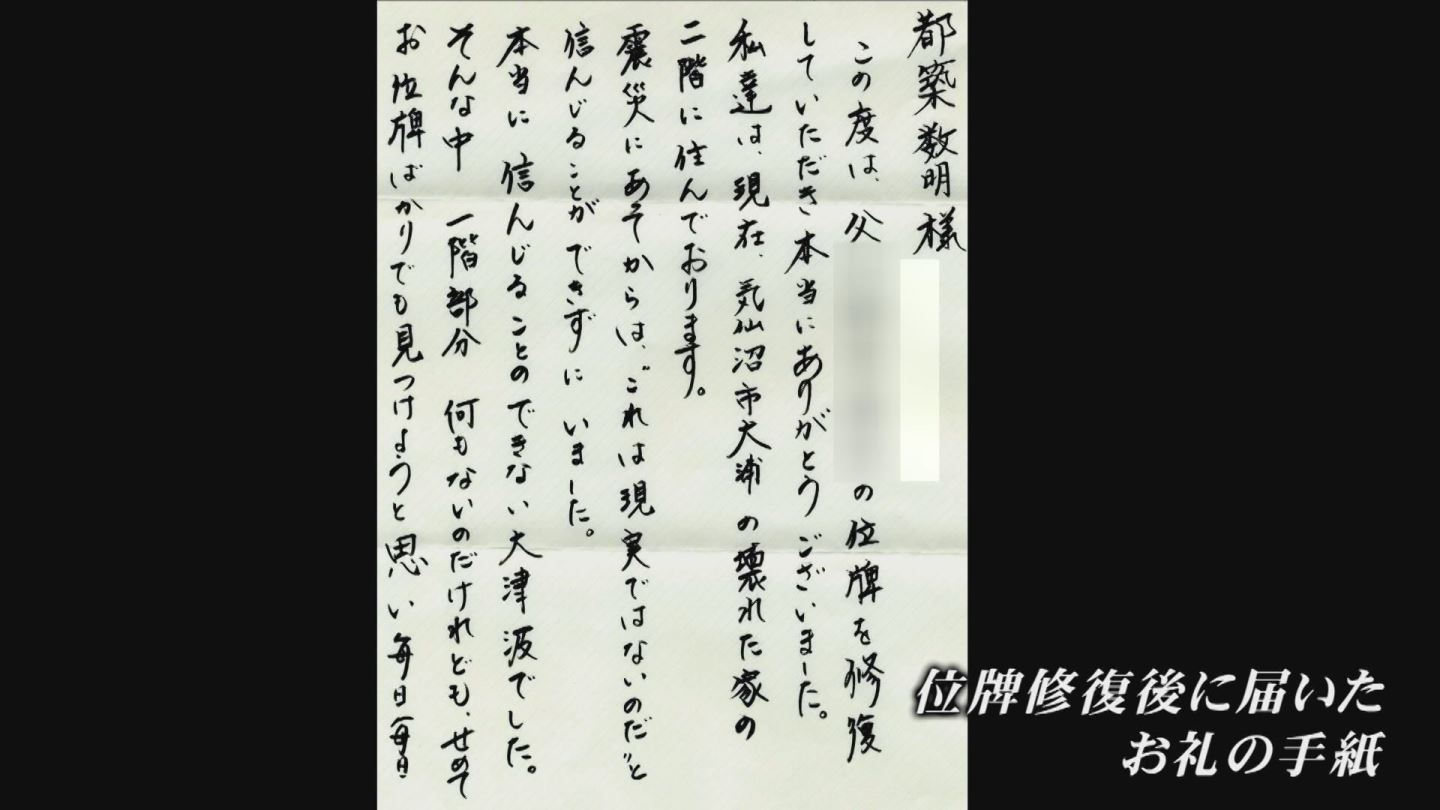 都築数明様
この度は、父
の位牌を修復
していただき本当にありがとうございました。
私達は、現在、気仙沼市大浦の壊れた家の
二階に住んでおります。
震災にあそからは、“これは現実ではないのだ”と
信んじることができずにいました。
本当に信んじることのできない大津波でした。
そんな中 一階部分 何もないのだけれども、せめて
お位牌ばかりでも見つけようと思い毎日毎日
位牌修復後に届いた
お礼の手紙